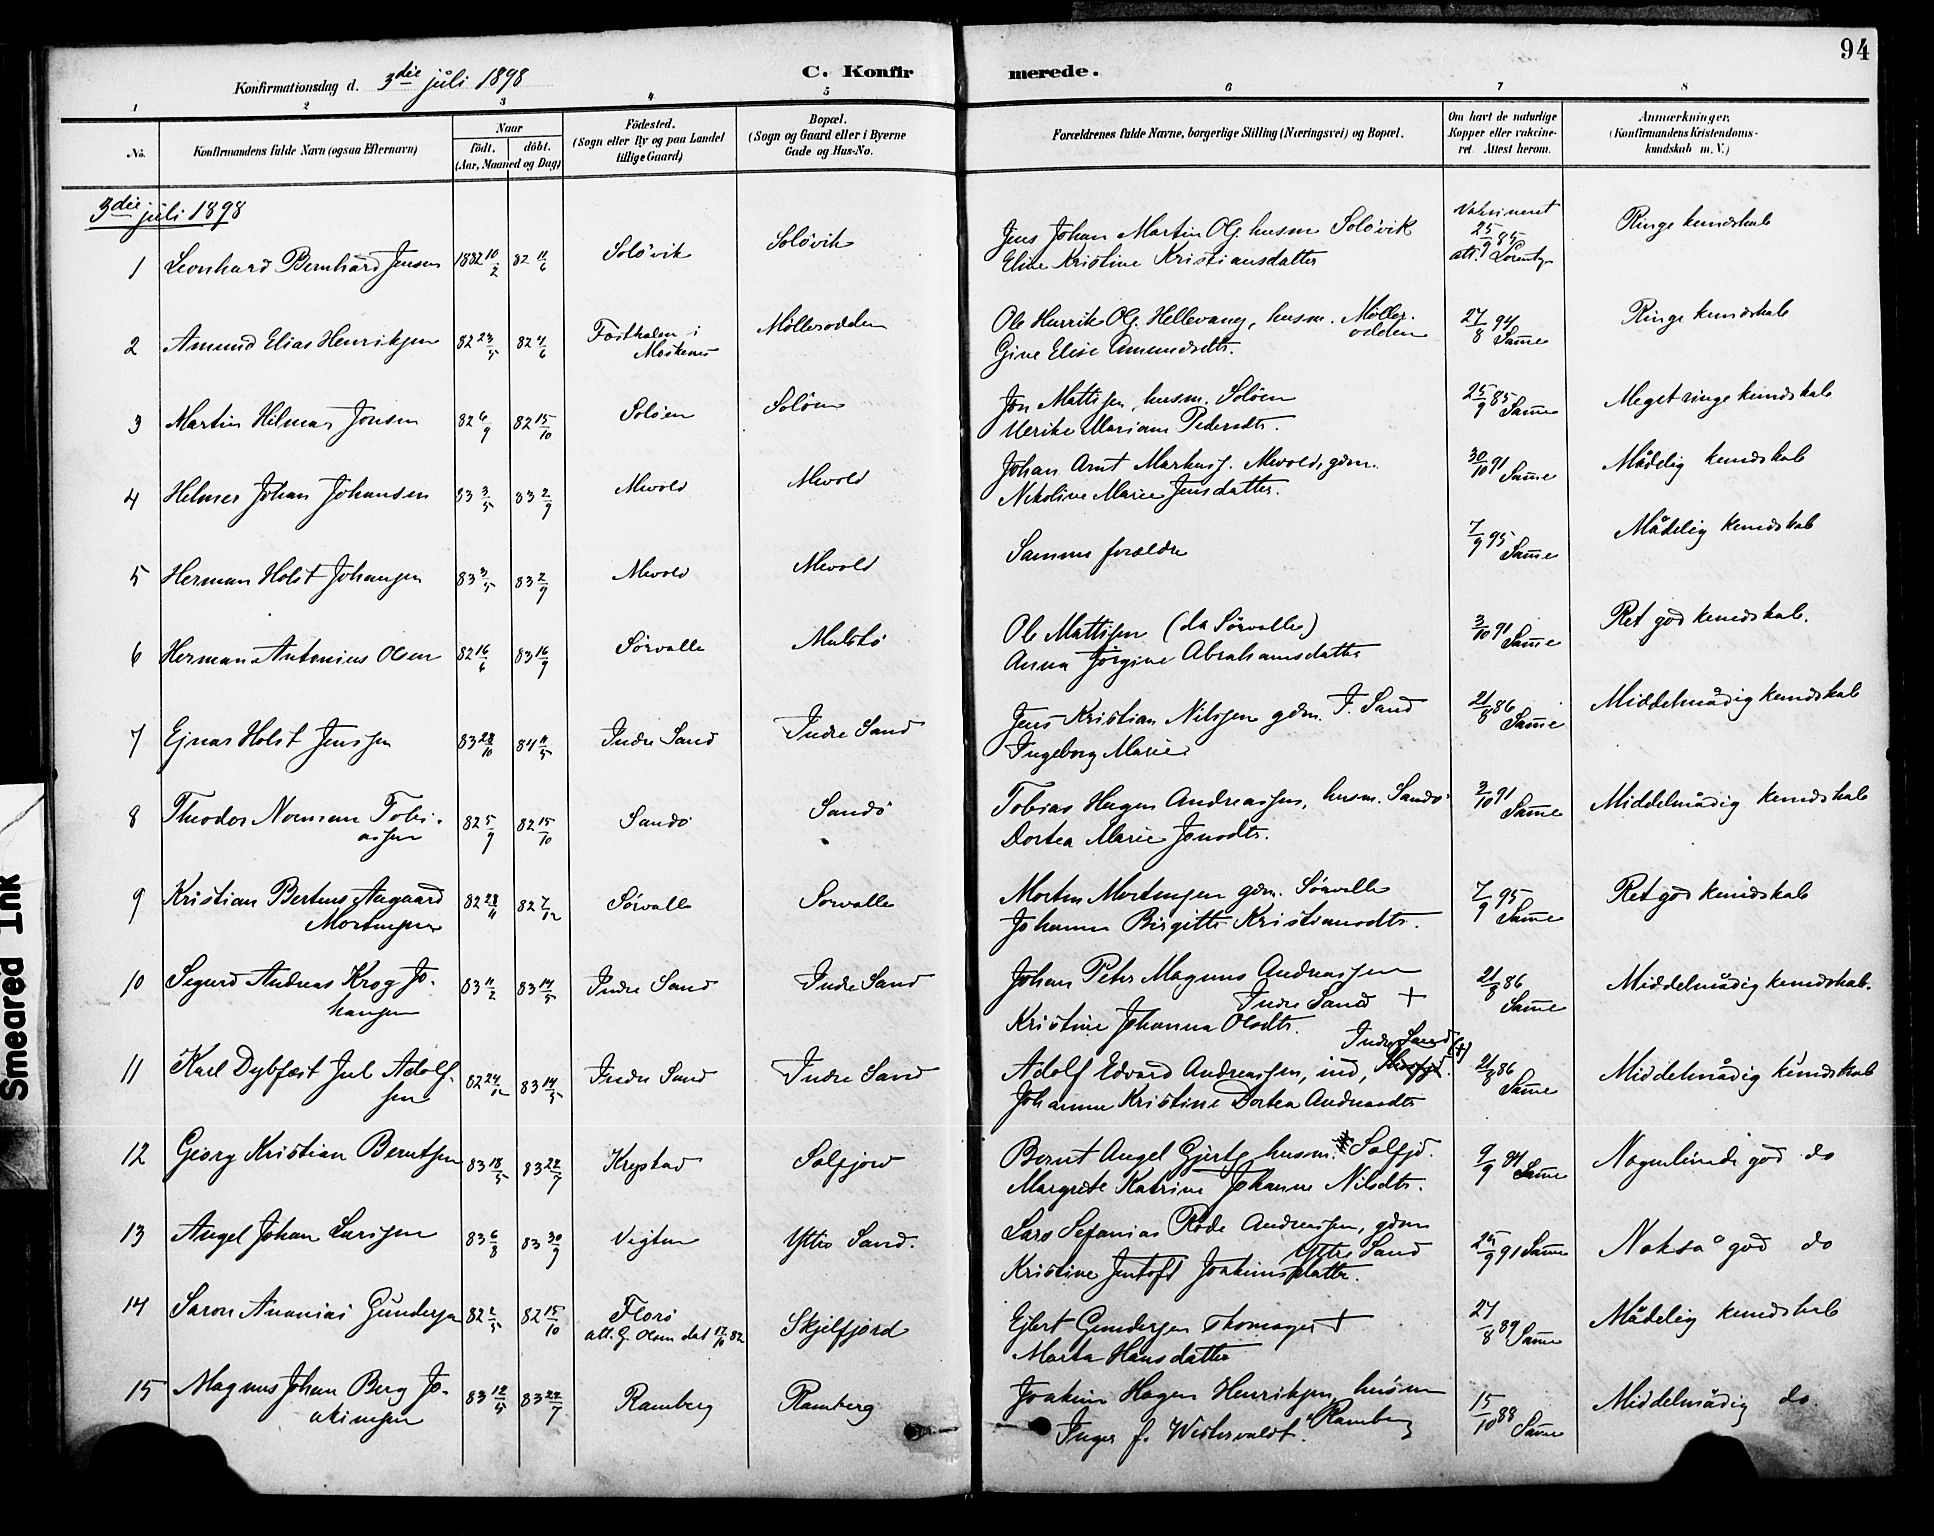 94
Konfirmationsdag d. 3die juli 1898
C. Konfirmerede.
1 2 3 4 5 6 7 8
No. Konfirmandens fulde Navn (ogsaa Efternavn) Naar födt. döbt. (Aar, Maaned og Dag) Födested. (Sogn eller By og paa Landet tillige Gaard) Bopæl. (Sogn og Gaard eller i Byerne Gade og Hus-No. Forældrenes fulde Navne, borgerlige Stilling (Næringsvei) og Bopæl. Om havt de naturlige Kopper eller vaccineret. Attest herom. Anmærkninger. (Konfirmandens Kristendomskundskab m. V.)
3die juli 1898
1 Leonhard Bernhard Jensen 1882 10/2 82 11/6 Solövik Solövik Jens Johan Martin Olg. husm Solövik Vaksineret 25/9 85 Ringe kundskab
Eline Kristine Kristiansdatter att. Lorentz
2 Amund Elias Henriksen 82 23/5 82 4/6 i Moskenes Möllerodden Ole Henrik Olg. Hellevang, husm. Möllerodden 27/8 94 Same Ringe kundskab
Gine Elise Amundsdtr.
3 Martin Hilmar Jonsen 82 6/9 82 15/10 Solöen Solöen Jon Mattisen, husm. Solöen 25/9 85 Same Meget ringe kundskab
Ulrike Mariane Pedersdtr.
4 Helmer Johan Johansen 83 3/5 83 2/9 Mevold Mevold Johan Arnt Markusf. Mevold, gdm. 30/10 91 Same Mådelig kundskab
Nikoline Marie Jensdatter.
5 Herman Holst Johansen 83 3/5 83 2/9 Mevold Mevold Samme forældre 7/9 95 Same Mådelig kundskab
6 Herman Antonius Olsen 82 16/6 83 16/9 Sörvalle Ole Mattisen (da Sörvalle) 3/10 91 Same Ret god kundskab.
Anna Jörgine Abrahamsdatter
7 Ejnar Holst Jenssen 83 28/10 84 11/5 Indre Sand Indre Sand Jens Kristian Nilssen gdm. I. Sand 21/8 86 Same Middelmådig kundskab
Ingeborg Marie
8 Theodor Norman Tobiassen 82 5/9 82 15/10 Sandö Sandö Tobias Hagen Andreassen, husm. Sandö 3/10 91 Same Middelmådig kundskab
Dortea Marie Jonsdtr.
9 Kristian Berteus Aagaard Mortensen 82 28/11 82 7/12 Sörvalle Sörvalle Morten Mortensen gdm. Sörvalle 7/9 95 Same Ret god kundskab
Johanne Birgitte Kristiansdtr.
10 Sigurd Andreas Krog Johansen 83 11/2 83 14/5 Indre Sand Indre Sand Johan Peter Magnus Andreassen Indre Sand + 21/8 86 Same Middelmådig kundskab.
Kristine Johanna Olsdtr.
11 Karl Dybfest Jul Adolfsen 82 24/12 83 14/5 Indre Sand Indre Sand Adolf Edvard Andreassen, ind, Indre Sand (+) 21/8 86 Same Middelmådig kundskab
Johanne Kristine Dortea Andreasdtr
12 Georg Kristian Berntsen 83 18/5 83 22/7 Krystad Solfjord Bernt Angel Gjertsen husm. Solfjd. 9/9 84 Same Nogenlunde god do
Margrete Katrine Johanne Nilsdtr.
13 Angel Johan Larssen 83 6/8 83 30/9 Vigten Yttre Sand. Lars Sefanias Röde Andreassen, gdm Yttre Sand 25/9 91 Same Nokså god do
Kristine Jentoft Joakimsdatter.
14 Saron Ananias Gundersen 82 2/5 82 15/10 Florö att. G. Olsen dat 17/10 82 Skjelfjord Ejlert Gundersen Thomasgr + 27/8 89 Same Mådelig kundskab
Marta Hansdatter
15 Magnus Johan Berg Joakimsen 83 12/5 83 22/7 Ramberg Ramberg Joakim Hagen Henriksen, husm Ramberg 15/10 88 Same Middelmådig do.
Inger f. Westervaldt.
Smeared Ink